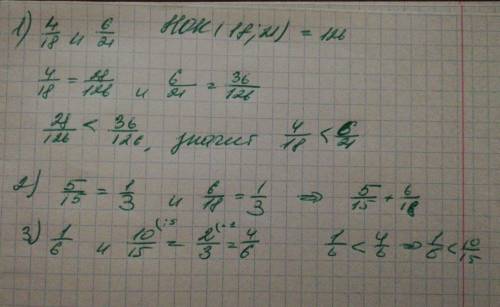 1) 4/18 и 6/21 НОК(18;21) = 126
4/18 = 28/126 и 6/21 = 36/126
28/126 < 36/126, значит 4/18 < 6/21
2) 5/15 = 1/3 и 6/18 = 1/3 ⇒ 5/15 + 6/18
3) 1/6 и 10/15 (:5 = 2/3 (·2 = 4/6 1/6 < 4/6 ⇒ 1/6 < 10/15